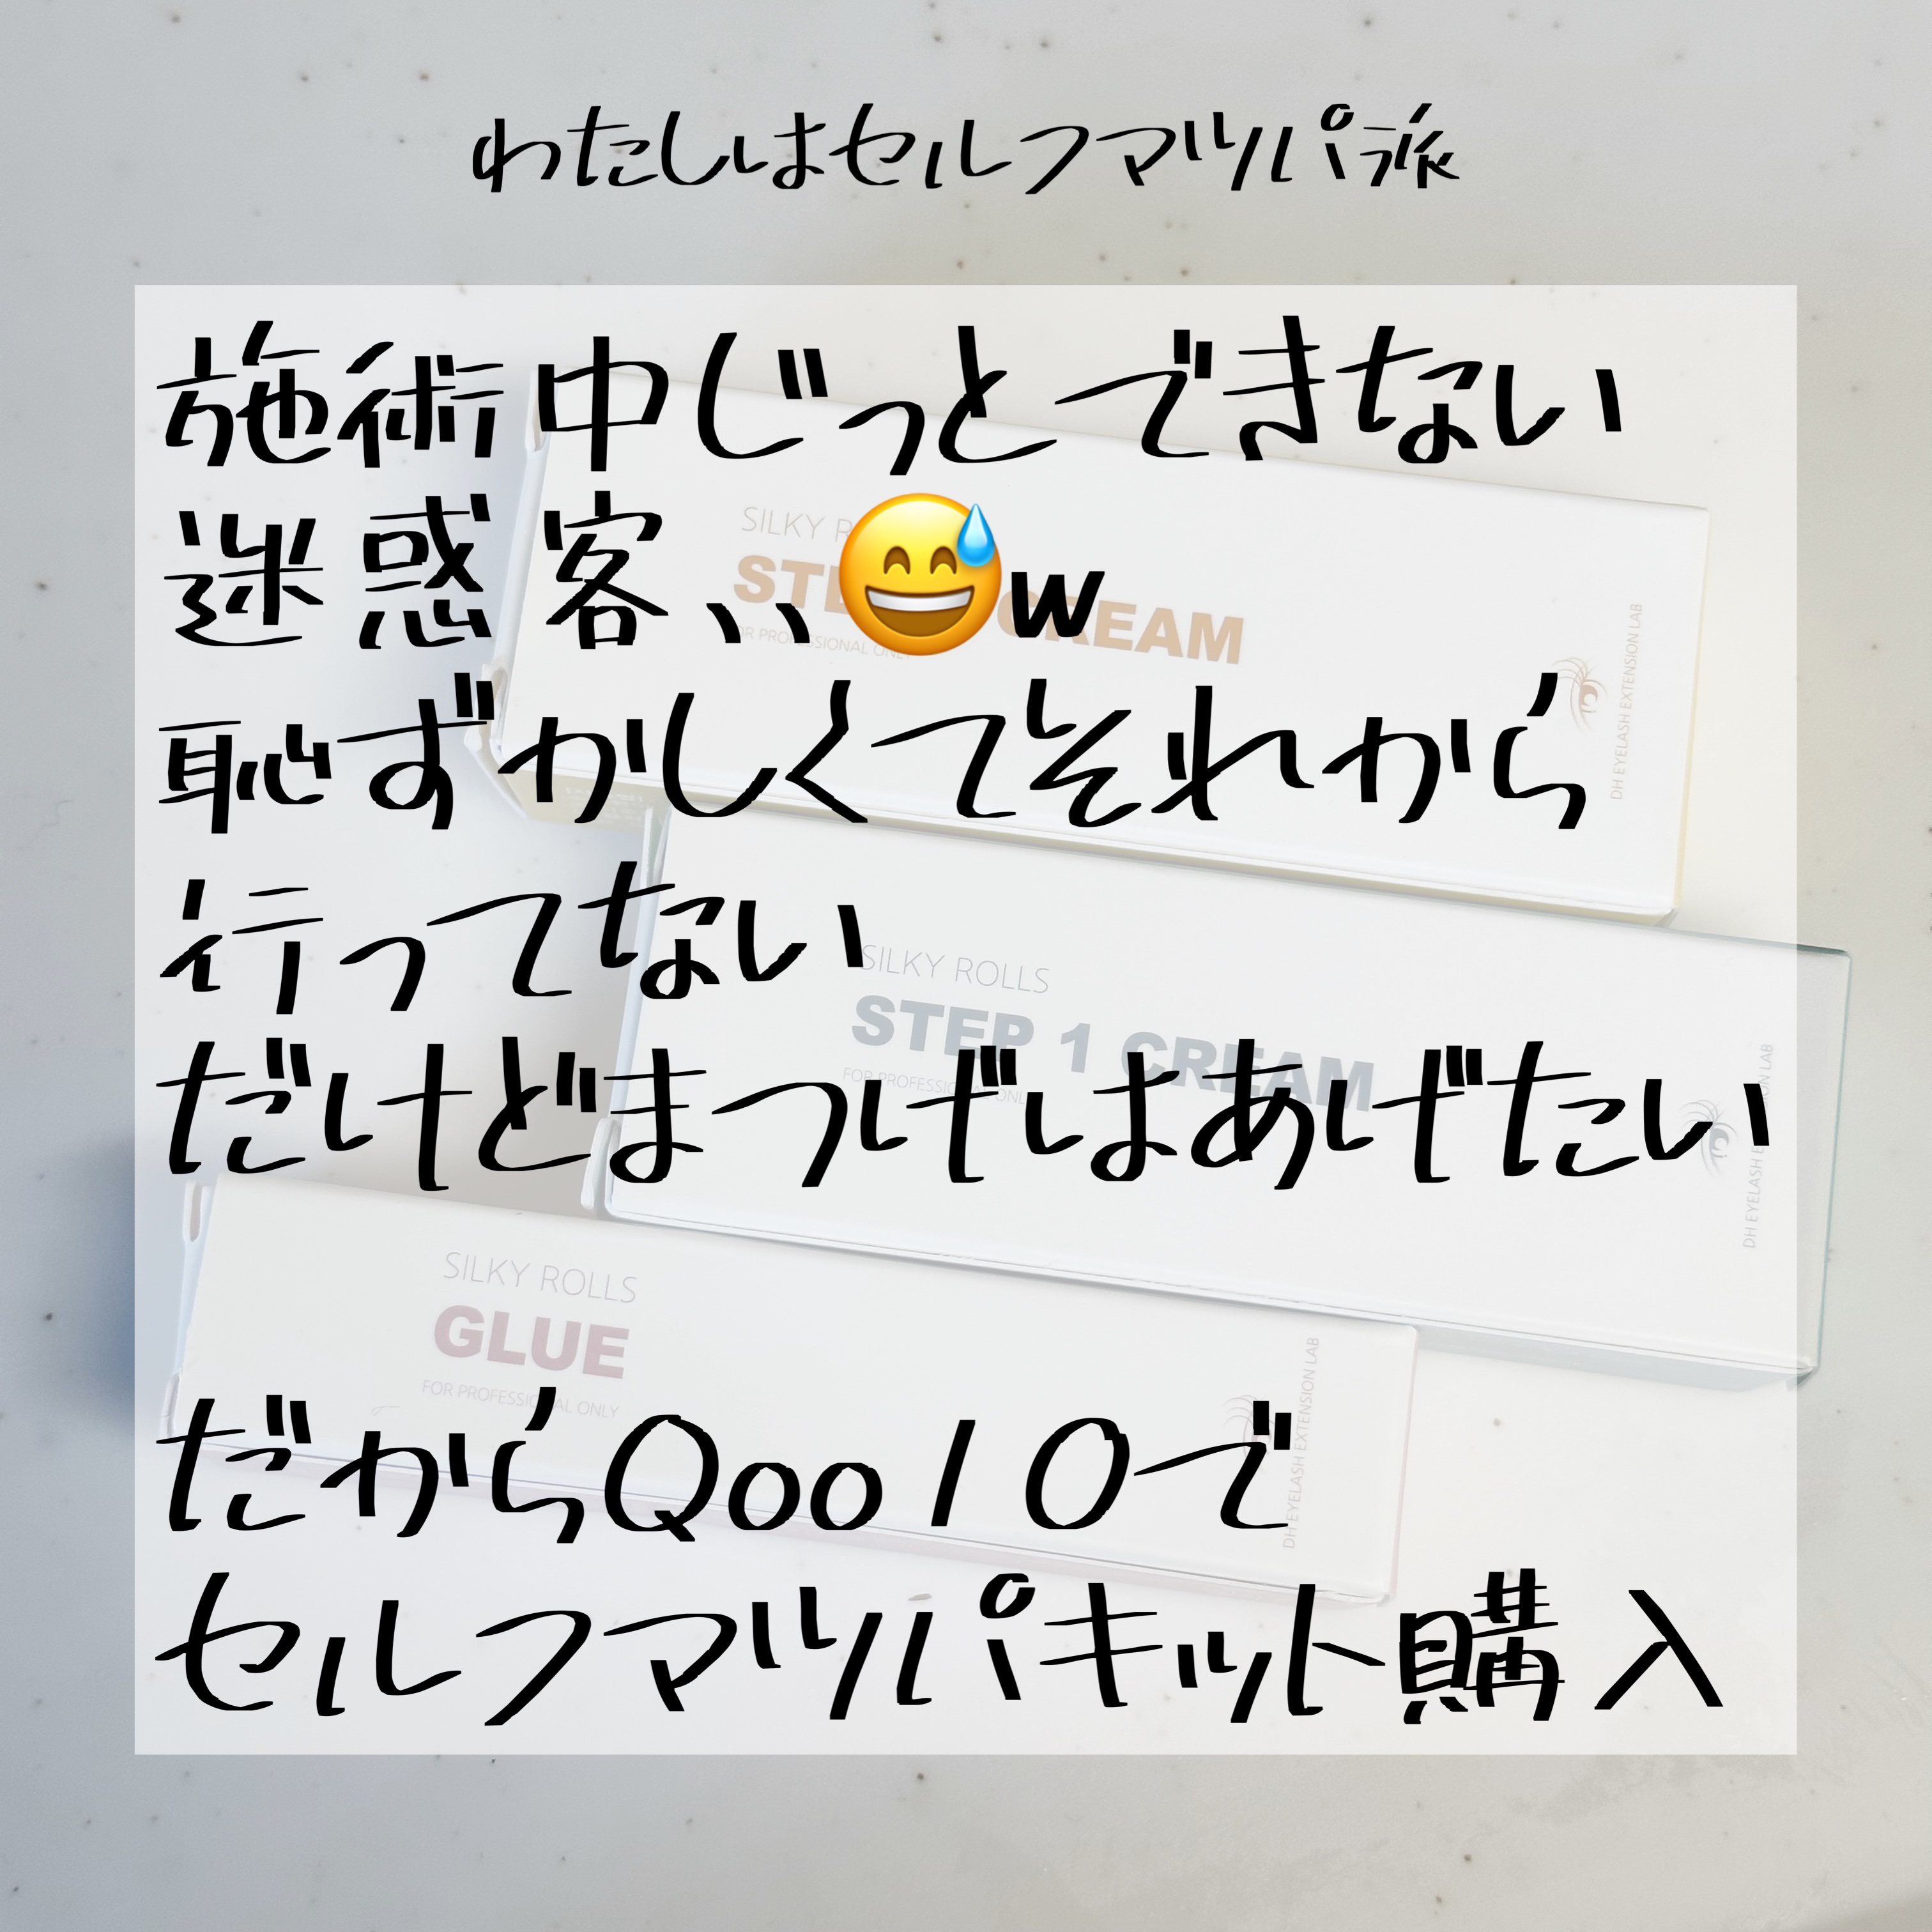 わたしはセルフマツパ派
施術中じっとできない
迷惑客、、、😅w
恥ずかしくてそれから
行ってない
だけどまつげはあげたい
だからQoo10で
セルフマツパキット購入
SILKY
CREAM
FOR PROFESSIONAL ONLY
DH EYELASH EXTENSION LAB
SILKY ROLLS
STEP 1 CREAM
FOR PROFESSIONAL ONLY
DH EYELASH EXTENSION LAB
SILKY ROLLS
GLUE
FOR PROFESSIONAL ONLY
DH EYELASH EXTENSION LAB